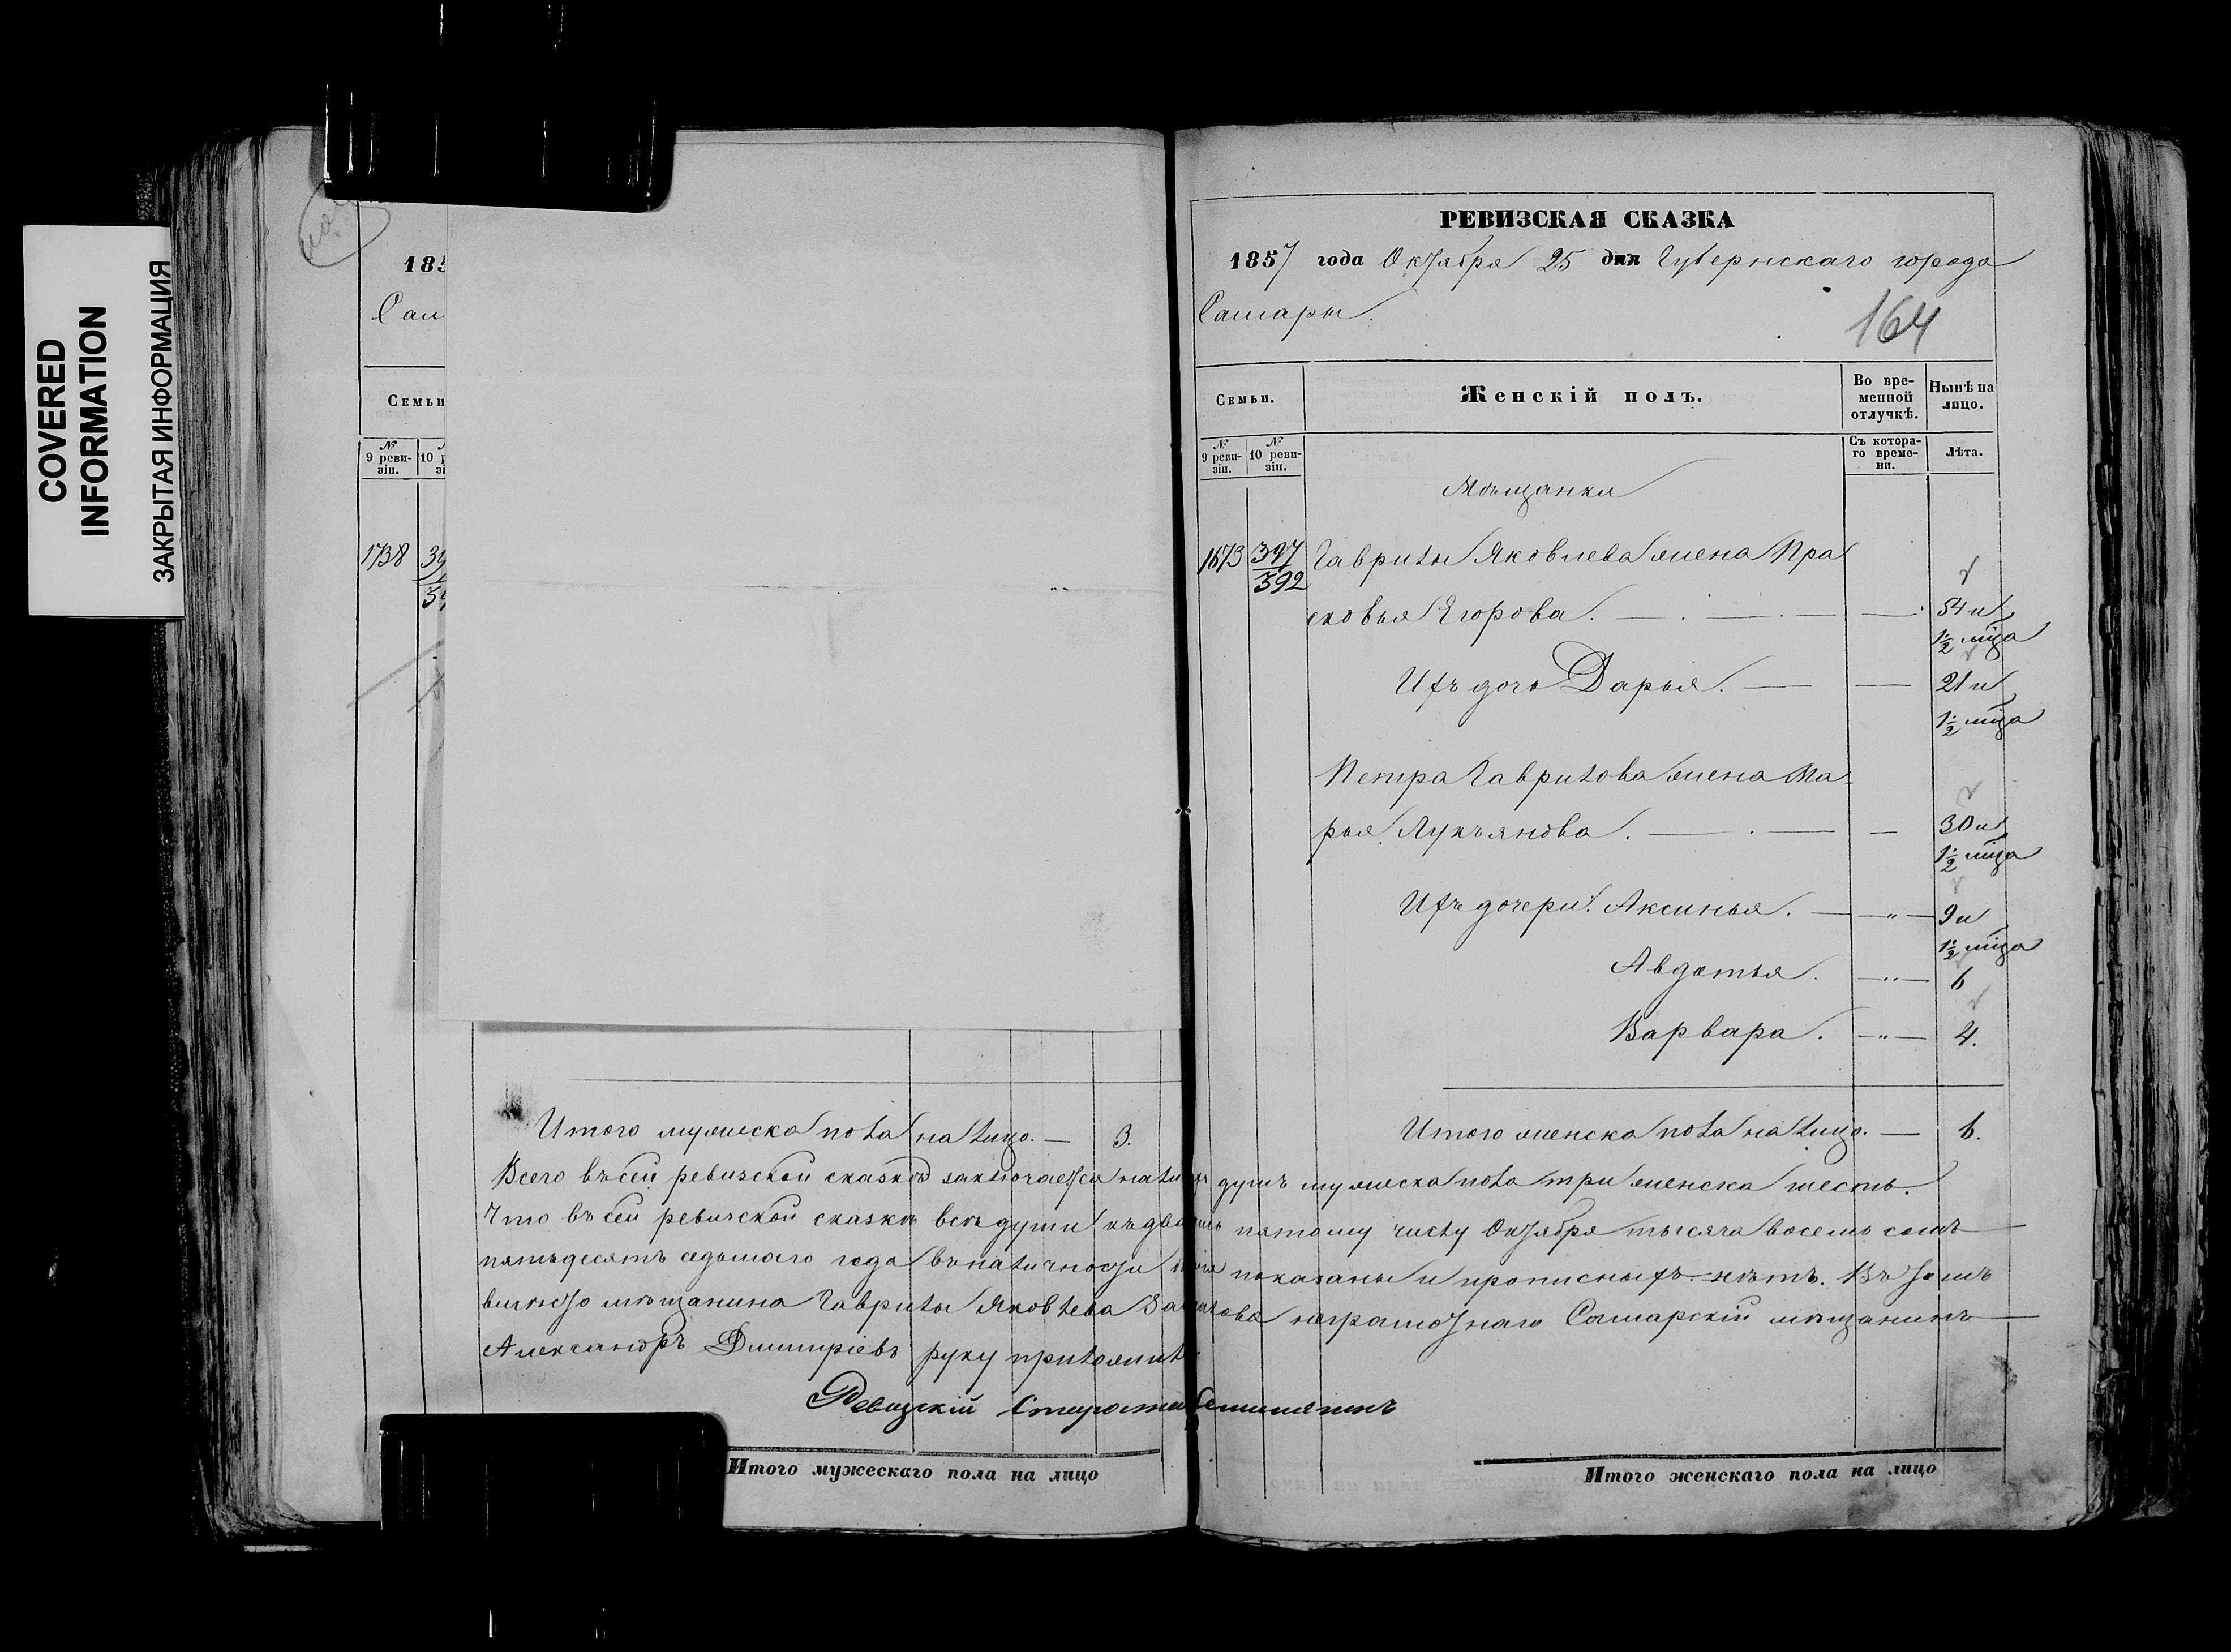 COVERED
INFORMATION
ЗАКРЫТАЯ ИНФОРМАЦИЯ
185
Сам
Семьи
№
9 реви-
зіи.
10 р
зі
1738
Итого мужеска пола на лицо. — 3.
РЕВИЗСКАЯ СКАЗКА
1857 года Октября 25 дня Губернскаго города
Самары.
164
Семьи.
Женскій полъ.
Во вре-
менной
отлучкѣ.
Нынѣ на
лицо.
№
9 реви-
зіи.
№
10 реви-
зіи.
Съ котора-
го време-
ни.
Лѣта.
Мѣщанки
1673 397 Гаврилы Яковлева жена Пра
392
сковья Егорова. — 54 и
1/2 мца
Ихъ дочь Дарья. — — 21 и
1/2 мца
Петра Гаврилова жена Ма-
рья Лукъянова. — — 30 и
1/2 мца
Ихъ дочери: Аксинья. — " — 9 и
1/2 мца
Авдотья. — " — 6
Варвара. — " — 4.
Итого женска пола на лицо. — 6.
Всего въ сей ревизской сказкѣ заключается на душъ мужеска пола три женска шесть.
Что въ сей ревизской сказкѣ всѣ души къ пятому числу Октября тысяча восемь сотъ
пятьдесятъ седьмаго года въ наличности показаны и прописныхъ нѣтъ. Въ томъ
вмѣсто мѣщанина Гаврилы Яковлева неграмотнаго Самарскій мѣщанинъ
Александръ Дмитріевъ руку приложилъ
Ревизскій Староста
Итого мужескаго пола на лицо
Итого женскаго пола на лицо